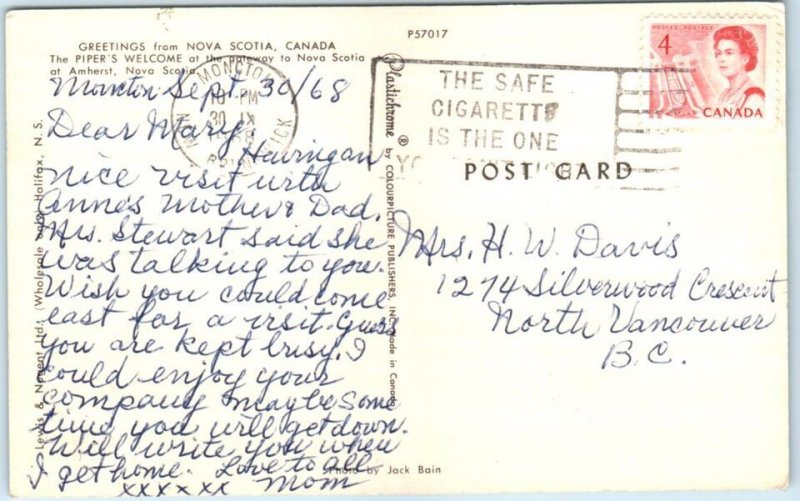 GREETINGS from NOVA SCOTIA, CANADA
The PIPER'S WELCOME at the gateway to Nova Scotia
at Amherst, Nova Scotia
Moncton Sept. 30/68
Dear Mary,
Having an
nice visit with
Anne's Mother & Dad.
Mrs. Stewart said she
was talking to you.
Wish you could come
east for a visit. Guess
you are kept busy. I
could enjoy your
company maybe some
time you will get down.
Will write you when
I get home. Love to all
xxxxxx Mom
Photo by Jack Bain
Lewis & Nugent Ltd., (Wholesale only) Halifax, N. S.
Plastichrome ® by COLOURPICTURE PUBLISHERS, INC. Made in Canada
P57017
MONCTON
10 PM
30 IX
BRUNSWICK
THE SAFE
CIGARETTE
IS THE ONE
4
POSTES POSTAGE
CANADA
POST CARD
Mrs. H. W. Davis
1274 Silverwood Crescent
North Vancouver
B.C.